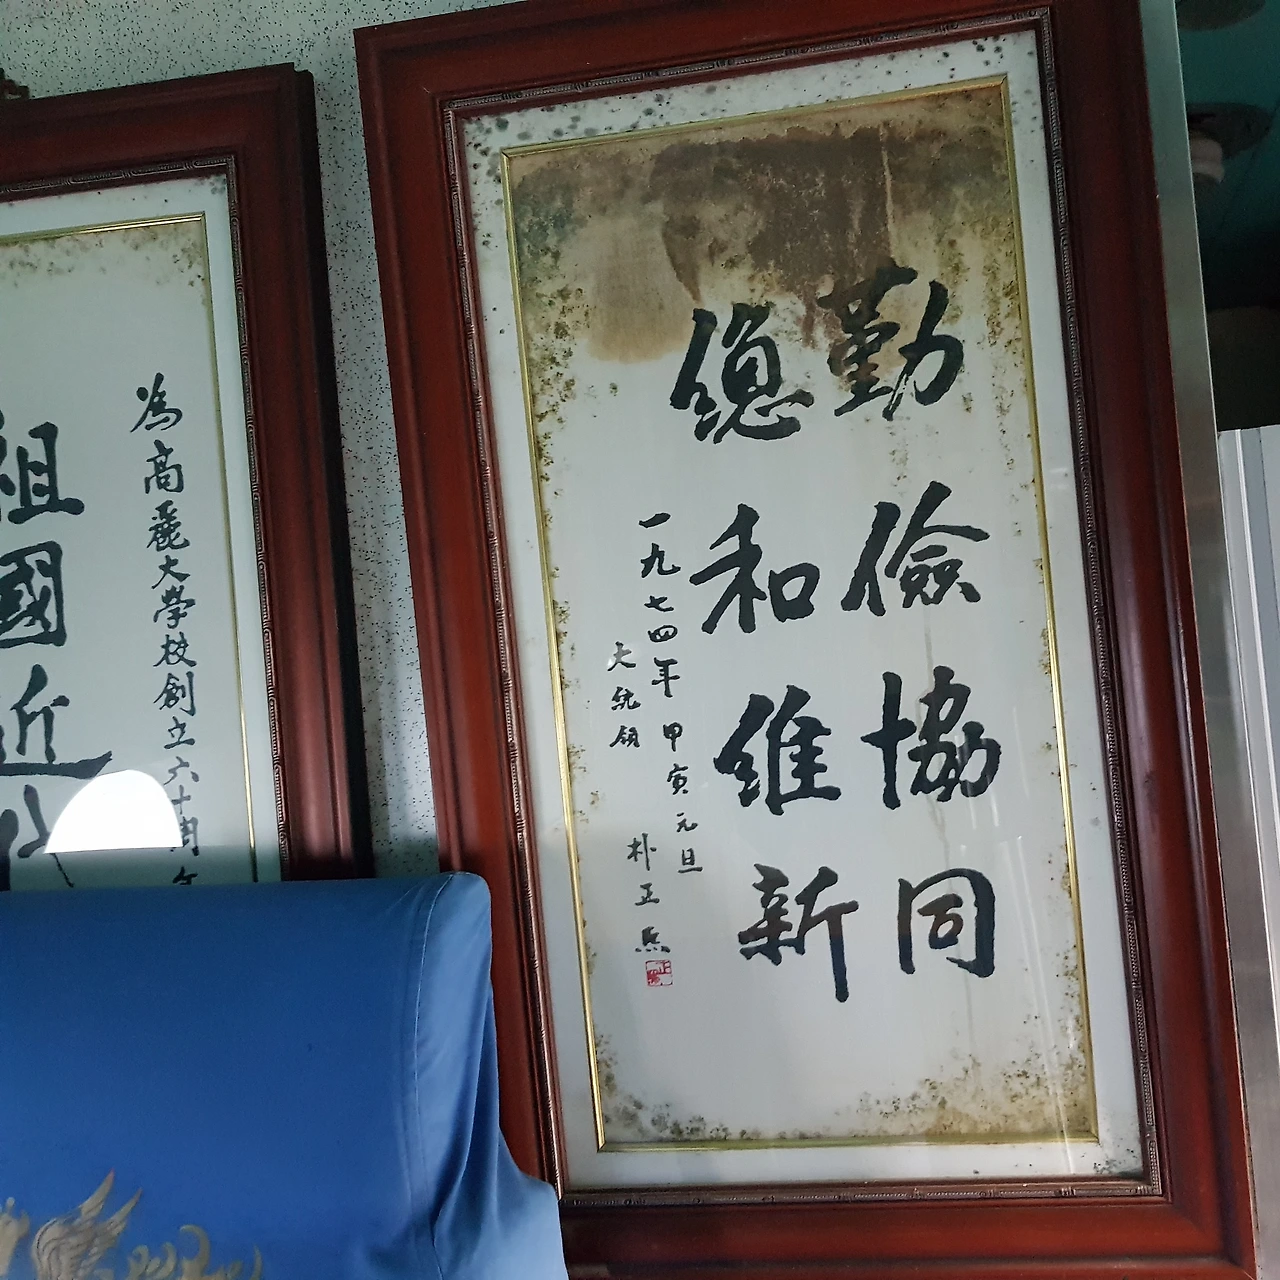 勤儉協同
總和維新
一九七四年 甲寅元旦
大統領 朴正熙
為高麗大學校創立六十周年
祖國近